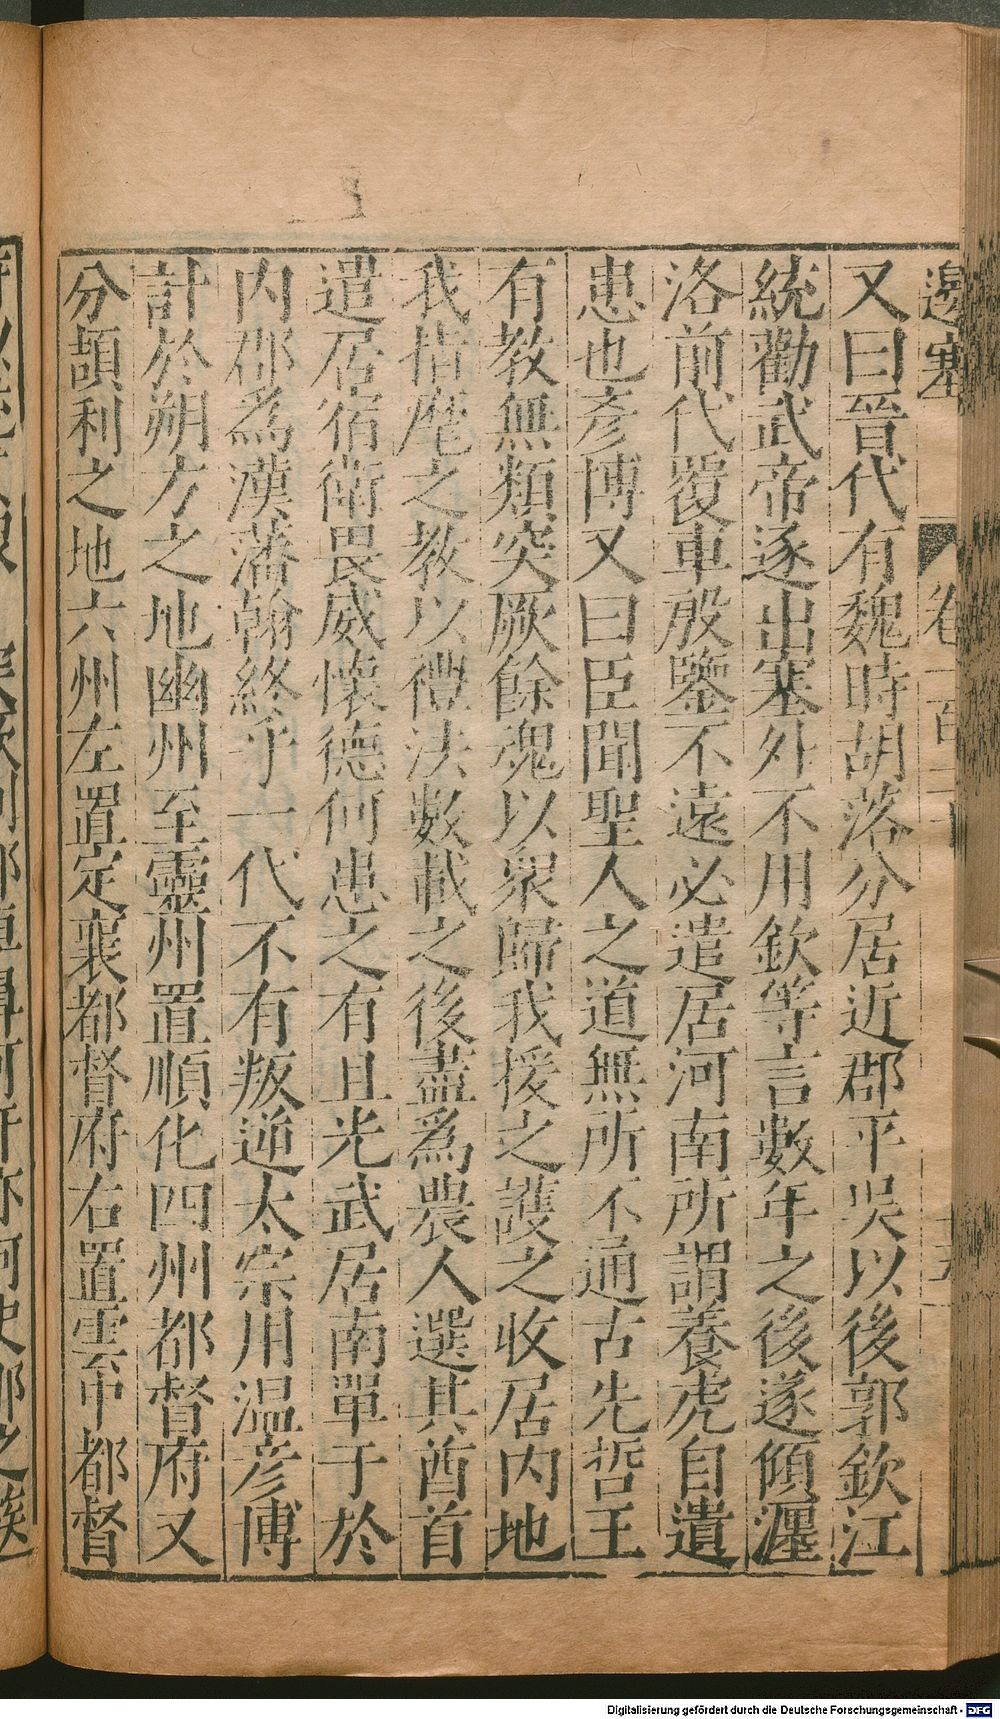 邊塞 卷一百二十
又曰晉代有魏時胡落分居近郡平吳以後郭欽江
統勸武帝逐出塞外不用欽等言數年之後遂傾瀍
洛前代覆車殷鑒不遠必遣居河南所謂養虎自遺
患也彥博又曰臣聞聖人之道無所不通古先哲王
有教無類突厥餘魂以衆歸我援之護之收居內地
我指麾之教以禮法數載之後盡爲農人選其酋首
遣居宿衛畏威懷德何患之有且光武居南單于於
內郡爲漢藩翰終乎一代不有叛逆太宗用温彦博
計於朔方之地幽州至靈州置順化四州都督府又
分頡利之地六州左置定襄都督府右置雲中都督
Digitalisierung gefördert durch die Deutsche Forschungsgemeinschaft - DFG